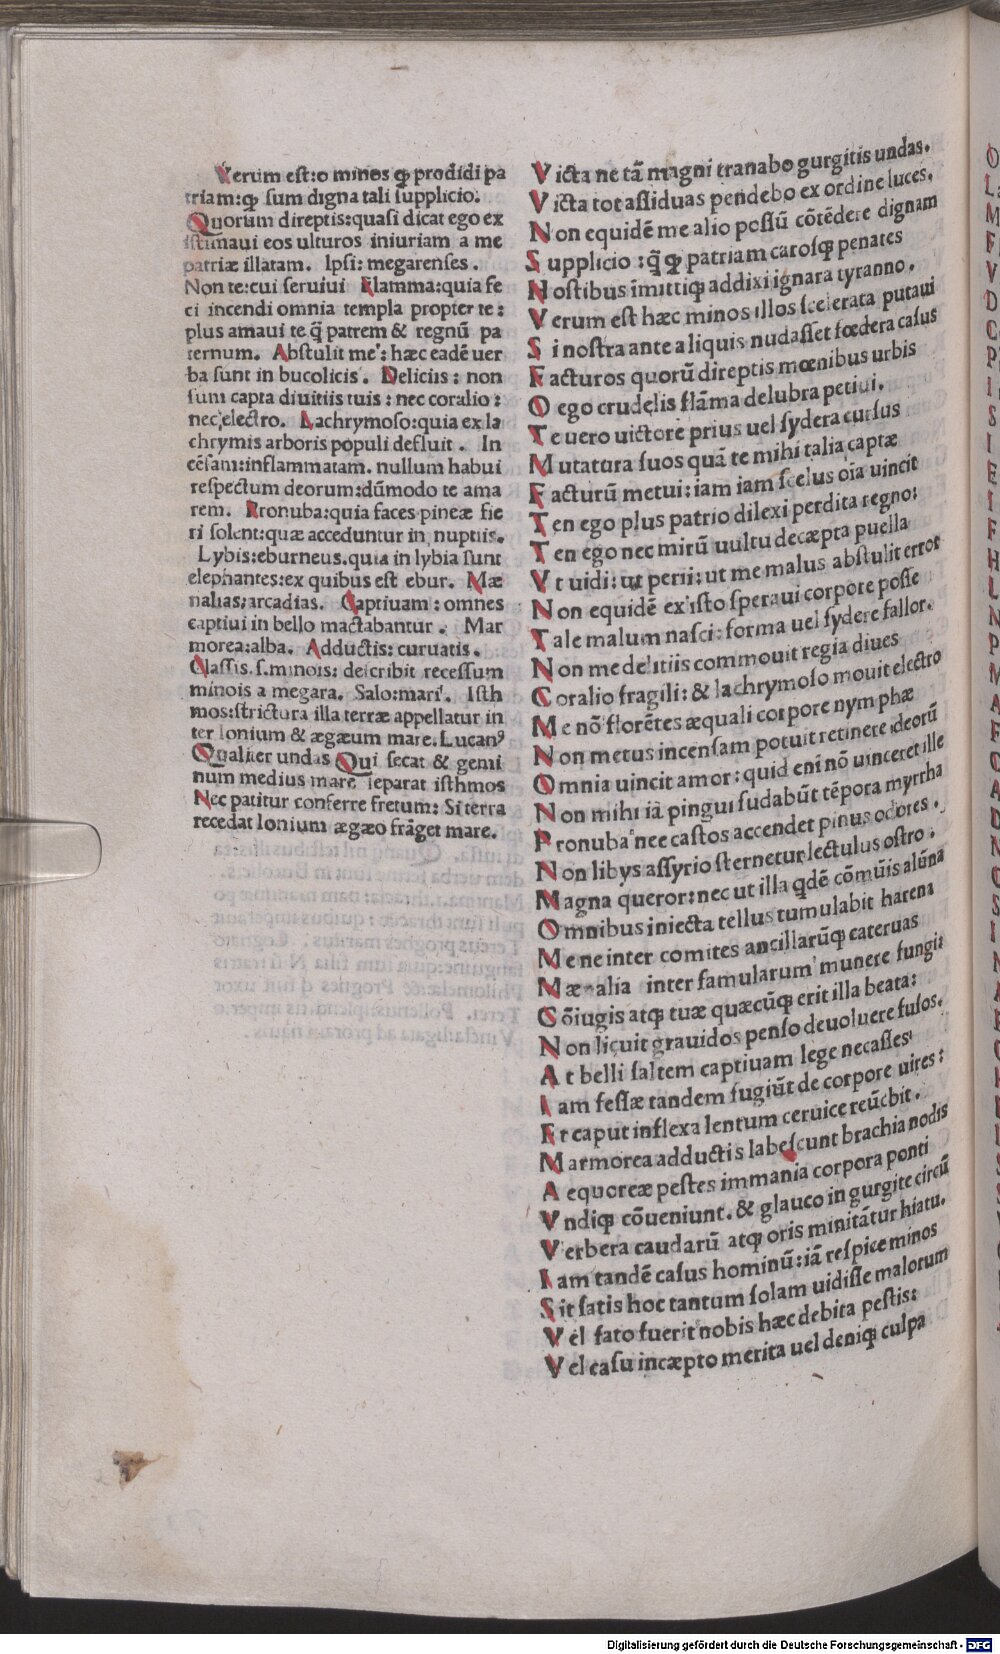 Verum est:o minos ꝙ prodidi pa
triam:ꝙ sum digna tali supplicio.
Quorum direptis:quasi dicat ego ex
istimaui eos ulturos iniuriam a me
patriæ illatam. Ipsi: megarenses.
Non te:cui seruiui Flamma:quia fe
ci incendi omnia templa propter te:
plus amaui te q̃ patrem & regnũ pa
ternum. Abstulit me: hæc eadẽ uer
ba sunt in bucolicis. Deliciis: non
sum capta diuitiis tuis: nec coralio:
nec electro. Lachrymoso:quia ex la
chrymis arboris populi defluit. In
cẽsam:inflammatam. nullum habui
respectum deorum:dũmodo te ama
rem. Pronuba:quia faces pineæ fie
ri solent:quæ acceduntur in nuptiis.
Lybis:eburneus.quia in lybia sunt
elephantes:ex quibus est ebur. Mæ
nalias:arcadias. Captiuam: omnes
captiui in bello mactabantur. Mar
morea:alba. Adductis: curuatis.
Classis.s.minois: describit recessum
minois a megara. Salo:mari. Isth
mos:strictura illa terræ appellatur in
ter Ionium & ægæum mare. Lucanꝰ
Qualiter undas Qui secat & gemi
num medius mare separat isthmos
Nec patitur conferre fretum: Si terra
recedat Ionium ægæo frãget mare.
Victa ne tã magni tranabo gurgitis undas.
Victa tot assiduas pendebo ex ordine luces.
Non equidẽ me alio possũ cõtẽdere dignam
Supplicio: q̃ ꝙ patriam carosqꝫ penates
Hostibus ĩmittiqꝫ addixi ignara tyranno.
Verum est hæc minos illos scelerata putaui
Si nostra ante aliquis nudasset fœdera casus
Facturos quorũ direptis mœnibus urbis
O ego crudelis flãma delubra petiui.
Te uero uictore prius uel sydera cursus
Mutatura suos quã te mihi talia captæ
Facturũ metui: iam iam scelus oĩa uincit
Ten ego plus patrio dilexi perdita regno:
Ten ego nec mirũ uultu decæpta puella
Vt uidi: ut perii: ut me malus abstulit error
Non equidẽ ex isto speraui corpore posse
Tale malum nasci: forma uel sydere fallor.
Non me delitiis commouit regia diues
Coralio fragili: & lachrymoso mouit electro
Me nõ florẽtes æquali corpore nymphæ
Non metus incensam potuit retinere ideorũ
Omnia uincit amor: quid enĩ nõ uinceret ille
Non mihi iã pingui sudabũt tẽpora myrrha
Pronuba nec castos accendet pinus odores.
Non libys assyrio sternetur lectulus ostro.
Magna queror: nec ut illa qdẽ cõmũis alũna
Omnibus iniecta tellus tumulabit harena
Me ne inter comites ancillarũqꝫ cateruas
Mænalia inter famularum munere fungi:
Cõiugis atqꝫ tuæ quæcũqꝫ erit illa beata:
Non licuit grauidos penso deuoluere fusos.
At belli saltem captiuam lege necasses
Iam fessæ tandem fugiũt de corpore uires:
Et caput inflexa lentum ceruice reũcbit.
Marmorea adductis labescunt brachia nodis
Aequoreæ pestes immania corpora ponti
Vndiqꝫ cõueniunt. & glauco in gurgite circũ
Verbera caudarũ atqꝫ oris minitãtur hiatu.
Iam tandẽ casus hominũ: iã respice minos
Sit satis hoc tantum solam uidisse malorum
Vel fato fuerit nobis hæc debita pestis:
Vel casu incæpto merita uel deniqꝫ culpa
Digitalisierung gefördert durch die Deutsche Forschungsgemeinschaft - DFG